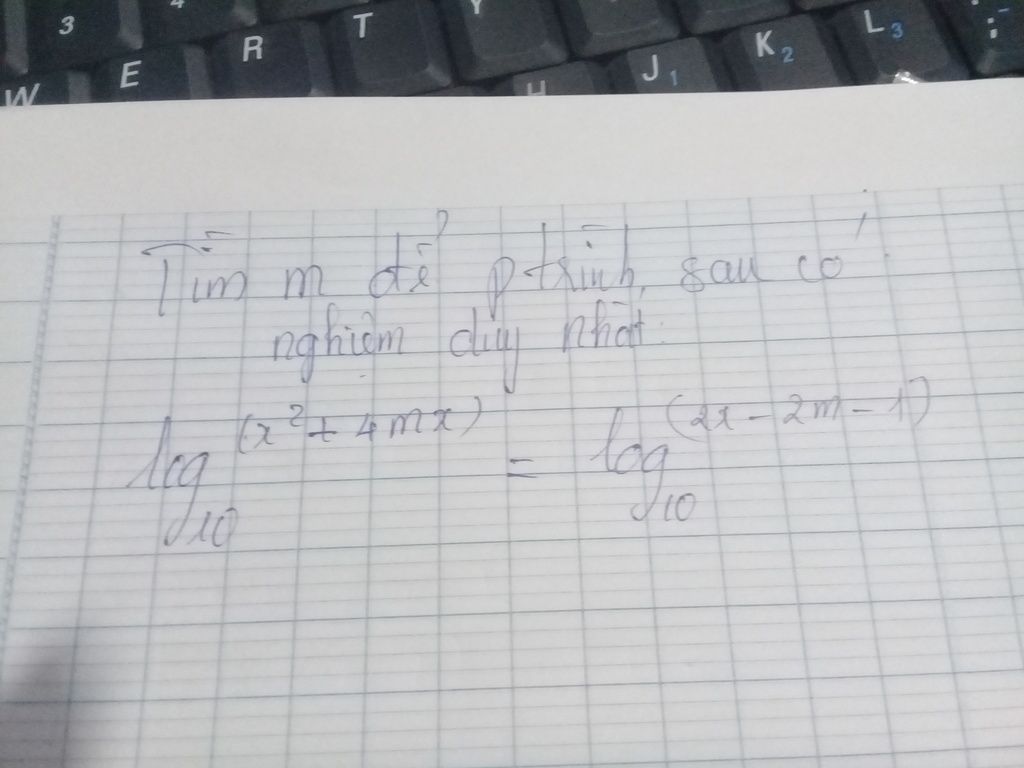 3 4
W E R T Y
H J 1 K 2 L 3 ;
Tìm m để ptrình sau có
nghiệm duy nhất.
log₁₀(x² + 4mx) = log₁₀(2x - 2m - 1)